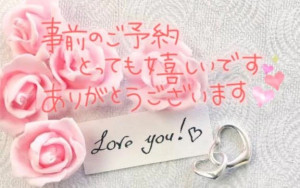 事前のご予約
とっても嬉しいです
ありがとうございます
Love you!♡